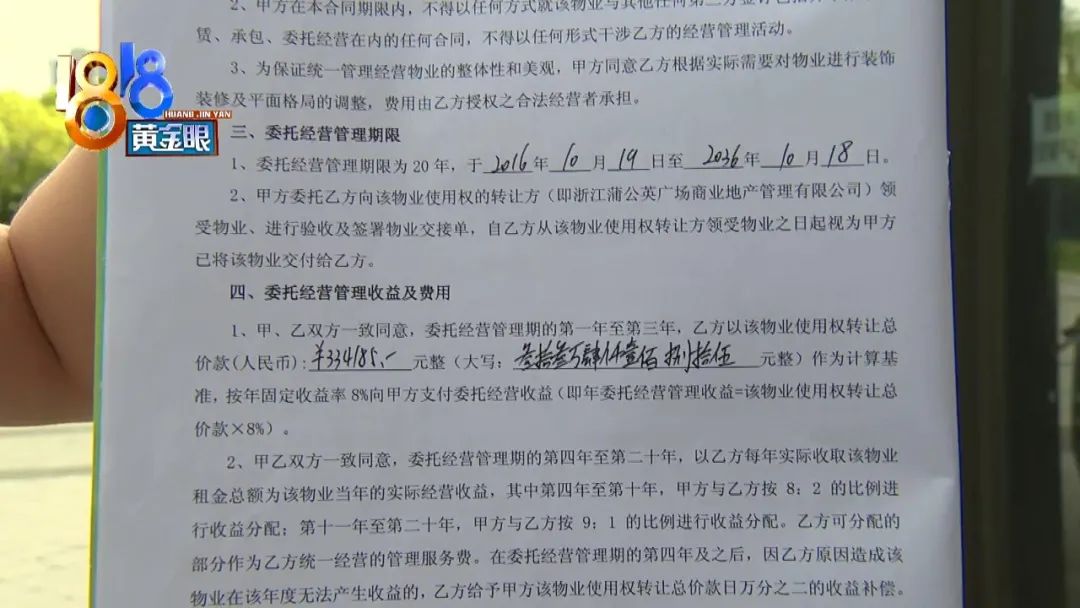 2、甲方在本合同期限内，不得以任何方式就该物业与其他任何第三方签订包括
赁、承包、委托经营在内的任何合同，不得以任何形式干涉乙方的经营管理活动。
3、为保证统一管理经营物业的整体性和美观，甲方同意乙方根据实际需要对物业进行装饰
装修及平面格局的调整，费用由乙方授权之合法经营者承担。
1818
HUANG JIN YAN
黄金眼
三、委托经营管理期限
1、委托经营管理期限为 20 年，于 2016 年 10 月 19 日至 2036 年 10 月 18 日。
2、甲方委托乙方向该物业使用权的转让方（即浙江蒲公英广场商业地产管理有限公司）领
受物业、进行验收及签署物业交接单，自乙方从该物业使用权转让方领受物业之日起视为甲方
已将该物业交付给乙方。
四、委托经营管理收益及费用
1、甲、乙双方一致同意，委托经营管理期的第一年至第三年，乙方以该物业使用权转让总
价款(人民币)：¥334185.- 元整（大写：叁拾叁万肆仟壹佰捌拾伍 元整）作为计算基
准，按年固定收益率 8%向甲方支付委托经营收益（即年委托经营管理收益=该物业使用权转让总
价款×8%）。
2、甲乙双方一致同意，委托经营管理期的第四年至第二十年，以乙方每年实际收取该物业
租金总额为该物业当年的实际经营收益，其中第四年至第十年，甲方与乙方按 8：2 的比例进
行收益分配；第十一年至第二十年，甲方与乙方按 9：1 的比例进行收益分配。乙方可分配的
部分作为乙方统一经营的管理服务费。在委托经营管理期的第四年及之后，因乙方原因造成该
物业在该年度无法产生收益的，乙方给予甲方该物业使用权转让总价款日万分之二的收益补偿。